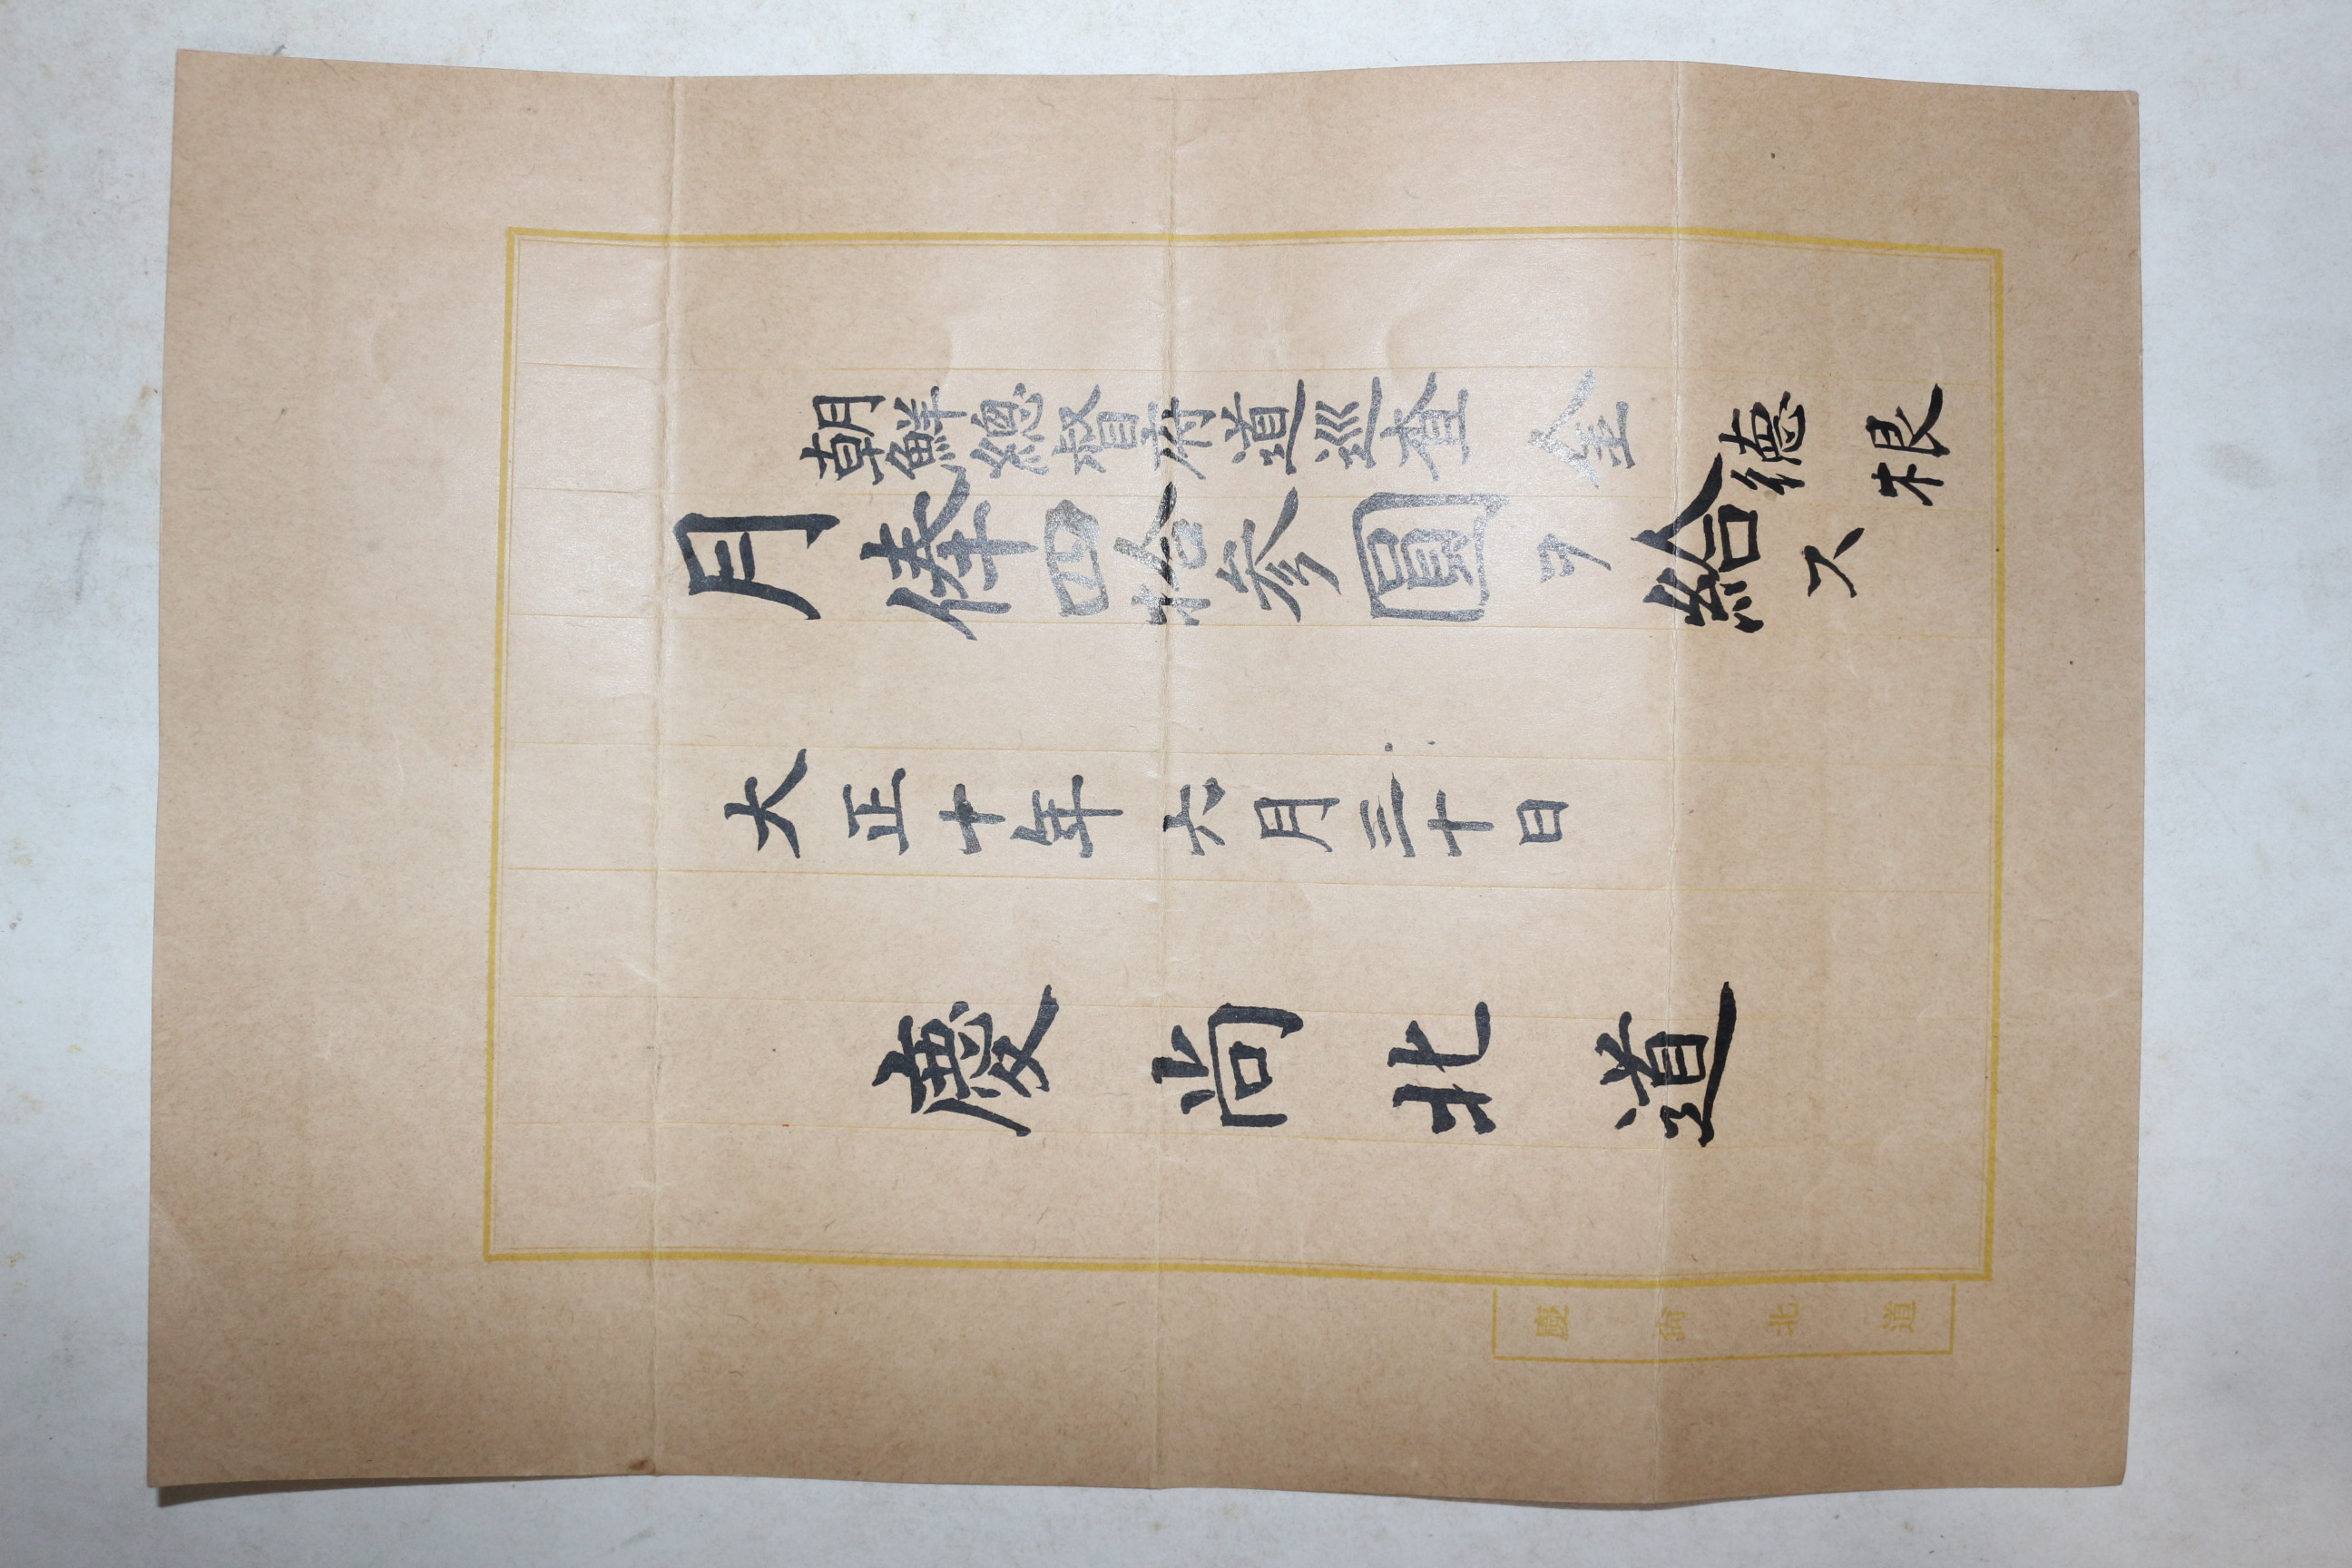 朝鮮總督府道巡査 金德根
月俸四拾參圓ヲ給ス
大正十年六月三十日
慶尚北道
慶尚北道